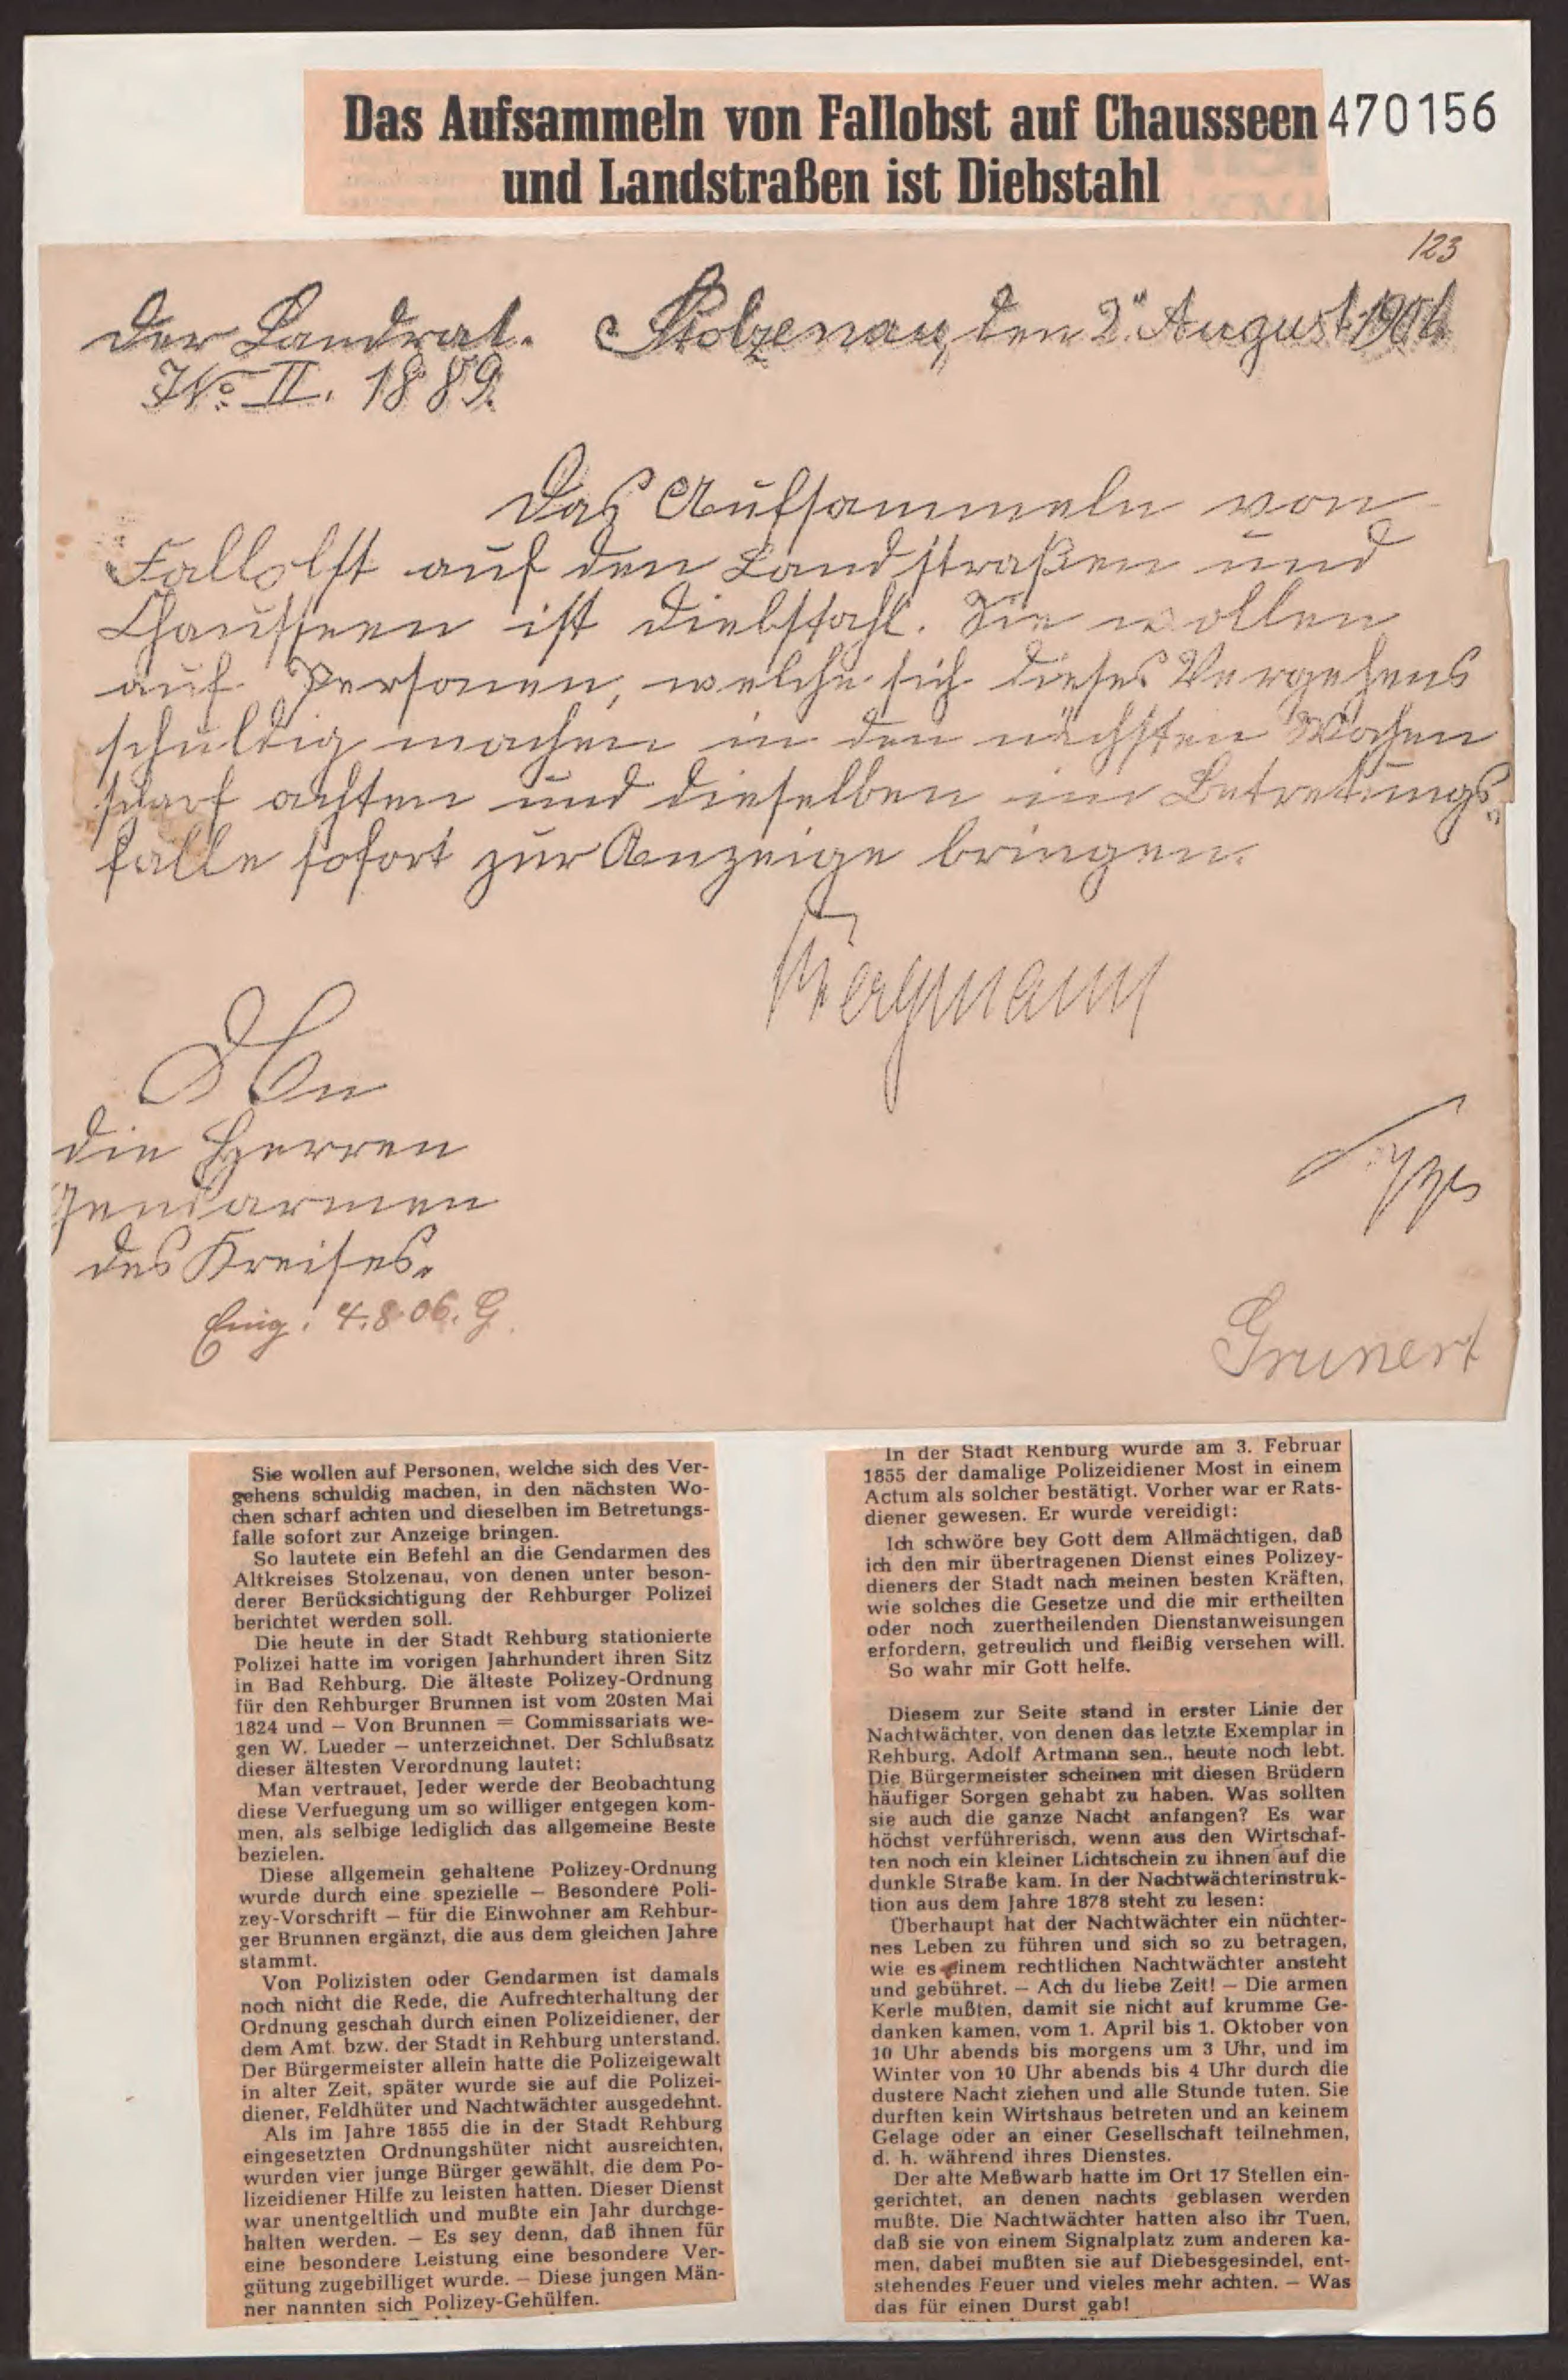 Das Aufsammeln von Fallobst auf Chausseen
und Landstraßen ist Diebstahl
470156
123
Der Landrat. Stolzenau, den 2ⁿ August 1906
No II. 1889.
Das Aufsammeln von
Fallobst auf den Landstraßen und
Chausseen ist Diebstahl. Sie wollen
auf Personen, welche sich dieses Vergehens
schuldig machen in den nächsten Wochen
scharf achten und dieselben im Betretungs-
falle sofort zur Anzeige bringen.
Bergmann
An
die Herren
Gendarmen
des Kreises.
Eing. 4.8.06. G.
Grunert
Sie wollen auf Personen, welche sich des Ver-
gehens schuldig machen, in den nächsten Wo-
chen scharf achten und dieselben im Betretungs-
falle sofort zur Anzeige bringen.
So lautete ein Befehl an die Gendarmen des
Altkreises Stolzenau, von denen unter beson-
derer Berücksichtigung der Rehburger Polizei
berichtet werden soll.
Die heute in der Stadt Rehburg stationierte
Polizei hatte im vorigen Jahrhundert ihren Sitz
in Bad Rehburg. Die älteste Polizey-Ordnung
für den Rehburger Brunnen ist vom 20sten Mai
1824 und — Von Brunnen = Commissariats we-
gen W. Lueder — unterzeichnet. Der Schlußsatz
dieser ältesten Verordnung lautet:
Man vertrauet, Jeder werde der Beobachtung
diese Verfuegung um so williger entgegen kom-
men, als selbige lediglich das allgemeine Beste
bezielen.
Diese allgemein gehaltene Polizey-Ordnung
wurde durch eine spezielle — Besondere Poli-
zey-Vorschrift — für die Einwohner am Rehbur-
ger Brunnen ergänzt, die aus dem gleichen Jahre
stammt.
Von Polizisten oder Gendarmen ist damals
noch nicht die Rede, die Aufrechterhaltung der
Ordnung geschah durch einen Polizeidiener, der
dem Amt bzw. der Stadt in Rehburg unterstand.
Der Bürgermeister allein hatte die Polizeigewalt
in alter Zeit, später wurde sie auf die Polizei-
diener, Feldhüter und Nachtwächter ausgedehnt.
Als im Jahre 1855 die in der Stadt Rehburg
eingesetzten Ordnungshüter nicht ausreichten,
wurden vier junge Bürger gewählt, die dem Po-
lizeidiener Hilfe zu leisten hatten. Dieser Dienst
war unentgeltlich und mußte ein Jahr durchge-
halten werden. — Es sey denn, daß ihnen für
eine besondere Leistung eine besondere Ver-
gütung zugebilliget wurde. — Diese jungen Män-
ner nannten sich Polizey-Gehülfen.
In der Stadt Rehburg wurde am 3. Februar
1855 der damalige Polizeidiener Most in einem
Actum als solcher bestätigt. Vorher war er Rats-
diener gewesen. Er wurde vereidigt:
Ich schwöre bey Gott dem Allmächtigen, daß
ich den mir übertragenen Dienst eines Polizey-
dieners der Stadt nach meinen besten Kräften,
wie solches die Gesetze und die mir ertheilten
oder noch zuertheilenden Dienstanweisungen
erfordern, getreulich und fleißig versehen will.
So wahr mir Gott helfe.
Diesem zur Seite stand in erster Linie der
Nachtwächter, von denen das letzte Exemplar in
Rehburg, Adolf Artmann sen., heute noch lebt.
Die Bürgermeister scheinen mit diesen Brüdern
häufiger Sorgen gehabt zu haben. Was sollten
sie auch die ganze Nacht anfangen? Es war
höchst verführerisch, wenn aus den Wirtschaf-
ten noch ein kleiner Lichtschein zu ihnen auf die
dunkle Straße kam. In der Nachtwächterinstruk-
tion aus dem Jahre 1878 steht zu lesen:
Überhaupt hat der Nachtwächter ein nüchter-
nes Leben zu führen und sich so zu betragen,
wie es einem rechtlichen Nachtwächter ansteht
und gebühret. — Ach du liebe Zeit! — Die armen
Kerle mußten, damit sie nicht auf krumme Ge-
danken kamen, vom 1. April bis 1. Oktober von
10 Uhr abends bis morgens um 3 Uhr, und im
Winter von 10 Uhr abends bis 4 Uhr durch die
dustere Nacht ziehen und alle Stunde tuten. Sie
durften kein Wirtshaus betreten und an keinem
Gelage oder an einer Gesellschaft teilnehmen,
d. h. während ihres Dienstes.
Der alte Meßwarb hatte im Ort 17 Stellen ein-
gerichtet, an denen nachts geblasen werden
mußte. Die Nachtwächter hatten also ihr Tuen,
daß sie von einem Signalplatz zum anderen ka-
men, dabei mußten sie auf Diebesgesindel, ent-
stehendes Feuer und vieles mehr achten. — Was
das für einen Durst gab!